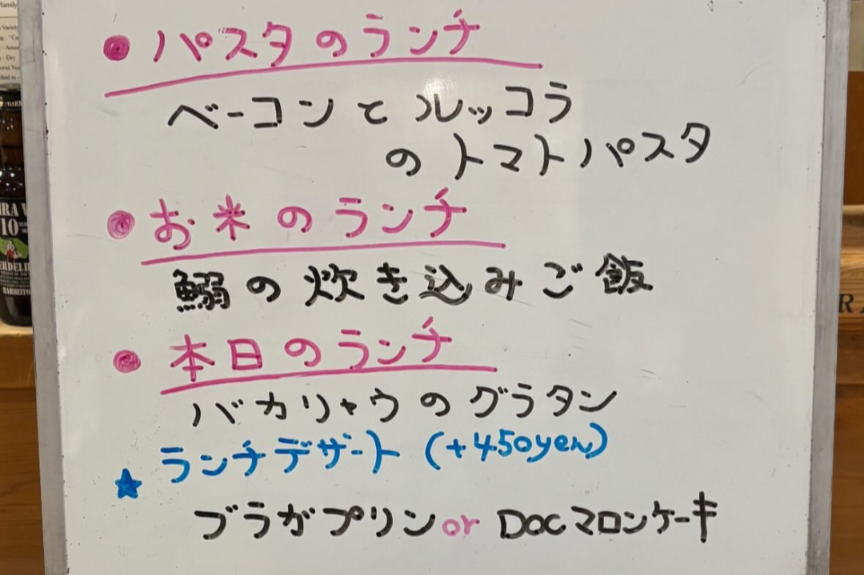 ● パスタのランチ
ベーコンとルッコラ
のトマトパスタ
● お米のランチ
鰯の炊き込みご飯
● 本日のランチ
バカリャウのグラタン
★ ランチデザート (+450yen)
ブラガプリン or DOCマロンケーキ
10